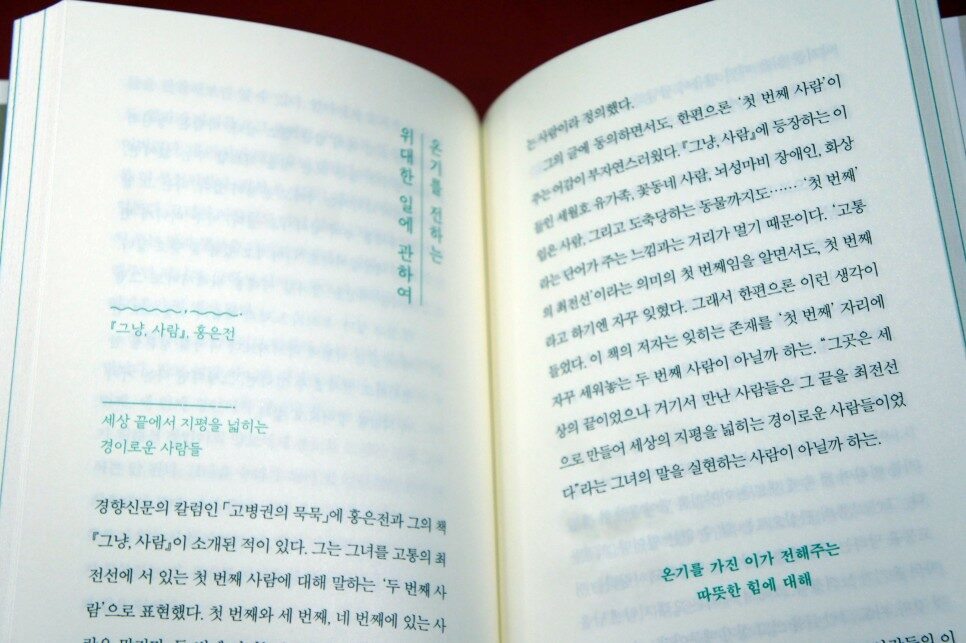 온기를 전하는
위대한 일에 관하여
『그냥, 사람』, 홍은전
세상 끝에서 지평을 넓히는
경이로운 사람들
경향신문의 칼럼인 「고병권의 묵묵」에 홍은전과 그의 책
『그냥, 사람』이 소개된 적이 있다. 그는 그녀를 고통의 최
전선에 서 있는 첫 번째 사람에 대해 말하는 ‘두 번째 사
람’으로 표현했다. 첫 번째와 세 번째, 네 번째에 있는 사
는 사람이라 정의했다.
그의 글에 동의하면서도, 한편으론 ‘첫 번째 사람’이
주는 어감이 부자연스러웠다. 『그냥, 사람』에 등장하는 이
들인 세월호 유가족, 꽃동네 사람, 뇌성마비 장애인, 화상
입은 사람, 그리고 도축당하는 동물까지도…… ‘첫 번째’
라는 단어가 주는 느낌과는 거리가 멀기 때문이다. ‘고통
의 최전선’이라는 의미의 첫 번째임을 알면서도, 첫 번째
라고 하기엔 자꾸 잊혔다. 그래서 한편으론 이런 생각이
들었다. 이 책의 저자는 잊히는 존재를 ‘첫 번째’ 자리에
자꾸 세워놓는 두 번째 사람이 아닐까 하는. “그곳은 세
상의 끝이었으나 거기서 만난 사람들은 그 끝을 최전선
으로 만들어 세상의 지평을 넓히는 경이로운 사람들이었
다”라는 그녀의 말을 실현하는 사람이 아닐까 하는.
온기를 가진 이가 전해주는
따뜻한 힘에 대해